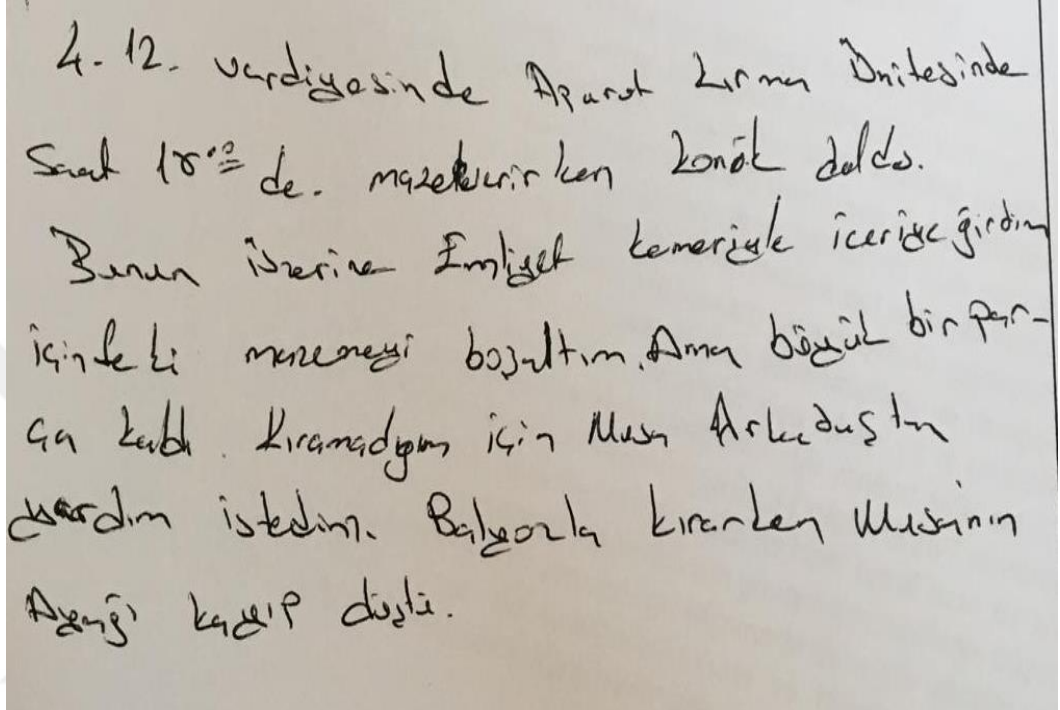 4-12. vardiyasinde Aparat kırma Ünitesinde
Saat 18:00 de. kırırken konik doldo.
Bunun üzerine Emliyet kemeriyle içeriye ğirdim
içinteki mazemeyi boşalttım. Ama böyük bir par-
ça kaldı. Kıramadığım için Musa Arkadaştan
yardım istedim. Balyozla kırarken Musa'nın
Ayağı kayıp düştü.